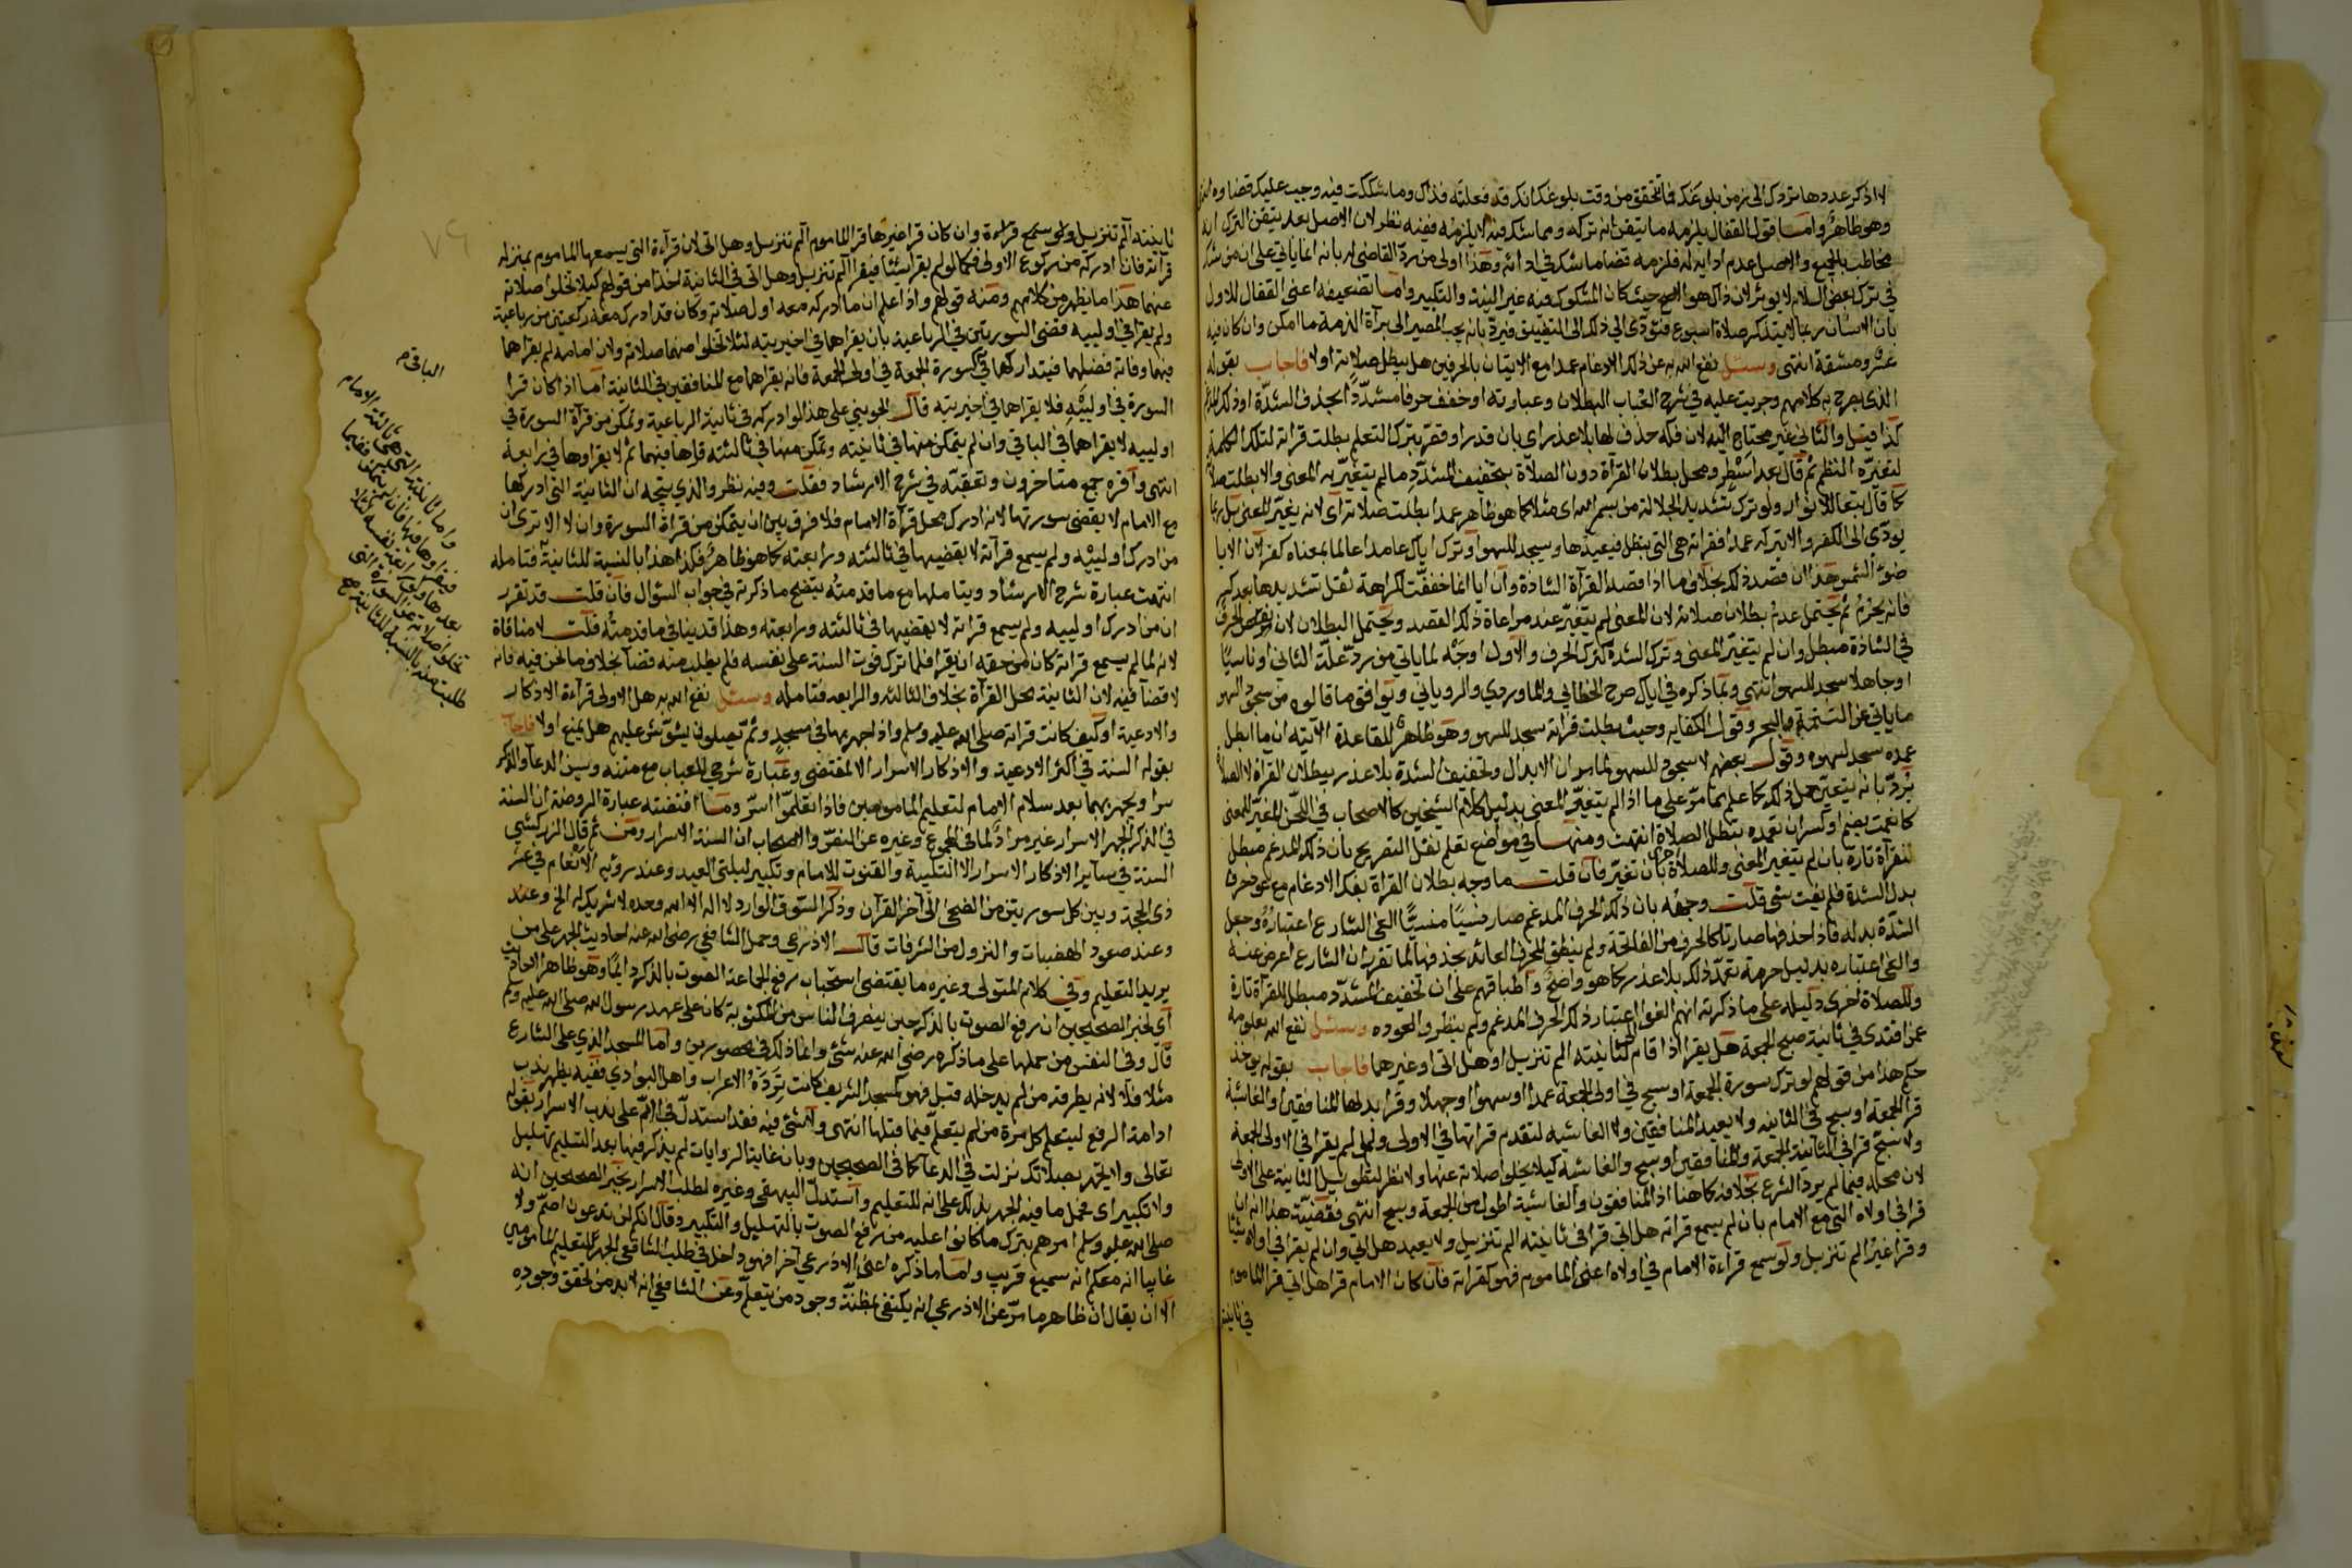 لا اذكر عددها تردك الى زمن بلوغك فما تحقق من وقت بلوغك انك قد فعلته فذاك وما شككت فيه وجب عليك قضاوه
وهو ظاهر واما قول القفال يلزمه ما يتيقن انه تركه ومما شك فيه لا يلزمه ففيه نظر لان الاصل بعد تيقن الترك انه
مخاطب بالجميع والاصل عدم ادايه له فلزمه قضا ما شك في ادائه وهذا اولى من رد القاضي له بانه انما ياتي على ان من شك
في ترك بعض الصلاة لا يوثر لان ذاك هو الاصح حيث كان المشكوك فيه غير النية والتكبير واما تضعيفه اعني القفال للاول
بان الانسان ربما لا يتذكر صلاة اسبوع فتؤدي الى ذلك الى التضييق فيرد بانه يجب المصير الى برآة الذمة ما امكن وان كان فيه
عسر ومشقة انتهى وسئل نفع الله به عن ذلك الادغام عمدا مع الاتيان بالحرفين هل يبطل صلاته او لا فاجاب بقوله
الذي يصرح به كلامهم وجريت عليه في شرح العباب البطلان وعبارته او خفف حرفا مشددا بحذف الشدة او ذلك المدغم
كذا قيل والثاني غير محتاج اليه لان فكه حذف لها بلا عذر اي بان قدر او قصر بترك التعلم بطلت قراته لتلك الكلمة
لتغيره النظم ثم قال بعد اسطر ومحل بطلان القرآة دون الصلاة بتخفيف المشدد ما لم يتغير به المعنى والا بطلت صلاته
كما قال تبعا للانوار ولو ترك تشديد الجلالة من بسم الله اى مثلا كما هو ظاهر عمدا بطلت صلاته اى لانه يغير المعنى بل ربما
يودي الى الكفر والا بتركه عمدا فقراته هي التي تبطل فيعيدها ويسجد للسهو او ترك اياك عامدا عالما بمعناه كفر لان الايا
ضوء الشمس هذا ان قصد ذلك بخلاف ما اذا قصد القرآة الشاذة وان ايا انما خففت لكراهة ثقل تشديدها بعد كسر
فانه يحرم ثم يحتمل عدم بطلان صلاته لان المعنى لم يتغير عند مراعاة ذلك القصد ويحتمل البطلان لان نقص الحرف
في الشاذة مبطل وان لم يتغير المعنى وترك الشدة كترك الحرف والاول اوجه لما ياتي من رد علة الثاني او ناسيا
او جاهلا سجد للسهو انتهى وبما ذكره في اياك صرح الخطابي والماوردي والروياني ويوافق ما قالوه من سجود السهو
ما ياتي عن التتمة والبحر وقول الكفايه وحيث بطلت قراته سجد للسهو وهو ظاهر للقاعدة الآتيه ان ما ابطل
عمده سجد لسهوه وقول بعضهم لا سجود للسهو لما مر ان الابدال وتخفيف الشدة بلا عذر يبطلان القراة لا الصلاة
يرد بانه يتعين حمل ذلك كما علم مما مر على ما اذا لم يتغير المعنى بدليل كلام الشيخين كالاصحاب في اللحن المغير للمعنى
كانعمت بضم او كسر ان تعمده تبطل الصلاة انتهت ومنها في مواضع تعلم نقل التصريح بان ذلك المدغم مبطل
للقرآة تارة بان لم يتغير المعنى وللصلاة اخرى بان تغير فان قلت ما وجه بطلان القراة بفك الادغام مع عود حرف
بدل الشدة فلم يفت شى قلت وجهه بان ذلك الحرف المدغم صار نسيا منسيا الغى الشارع اعتباره وجعل
الشدة بدله فاذا حذفها صار تاركا لحرف من الفاتحة ولم ينظر للحرف العائد بحذفها لما تقرر ان الشارع اعرض عنه
والغى اعتباره بدليل حرمة تعمد ذلك بلا عذر كما هو واضح واطباقهم على ان تخفيف المشدد مبطل للقرآة تارة
وللصلاة اخرى دليل على ما ذكرته انهم الغوا اعتبار ذلك الحرف المدغم ولم ينظروا لعوده وسئل نفع الله بعلومه
عمن اقتدى في ثانية صبح الجمعة هل يقرا اذا قام لثانيته الم تنزيل او هل اتى او غيرهما فاجاب بقوله يوخذ
حكم هذا من قولهم لو ترك سورة الجمعة او سبح في اولى الجمعة عمدا او سهوا او جهلا وقرا بدلها المنافقين او الغاشية
قرا الجمعة او سبح في الثانيه ولا يعيد المنافقين ولا الغاشيه لتقدم قراتها في الاولى ولو لم يقرا في الاولى الجمعة
ولا سبح قرا في الثانية الجمعة والمنافقين او سبح والغاشيه كيلا يخلوا صلاته عنها ولا نظر لتطويل الثانية على الاولى
لان محله فيما لم يرد الشرع بخلافه كما هنا اذ المنافقون والغاشية اطول من الجمعة وسبح انتهى فقضية هذا انه ان
قرا في اولاه التي مع الامام بان لم يسمع قراته هل اتى قرا في ثانيته الم تنزيل ولا يعيد هل اتى وان لم يقرا في اولاه شيئا
وقرا غير الم تنزيل ولو سمع قراءة الامام في اولاه اعني الماموم فهو كقراته فان كان الامام قرا هل اتى قرا الماموم
في ثانيته
٧٩
ثانيته آلم تنزيل ولو سمع قراءة وان كان قرا غيرها قرا الماموم آلم تنزيل وهل اتى لان قرآءة التي يسمعها الماموم بمنزلة
قرآته فان ادركه من ركوع الاولى فكما لو لم يقرا شيئا فيقرا آلم تنزيل وهل اتى في الثانية اخذا من قولهم كيلا تخلوا صلاته
عنهما هذا ما يظهر من كلامهم ومنه قولهم واذا علم ان ما ادركه معه اول صلاته وكان قد ادرك معه ركعتين من رباعية
ولم يقرا في اولييه قضى السورتين في الرباعية بان يقراهما في اخيريتيه لئلا تخلوا منهما صلاته ولان امامه لم يقراهما
فيهما وفاته فضلهما فيتداركهما كسورة الجمعة في اولى الجمعة فانه يقراها مع المنافقين في الثانية اما اذا كان قرا
السورة في اولييه فلا يقراهما في اخيريتيه قال الجويني على هذا لو ادركه في ثانية الرباعية وتمكن من قرآة السورة في
اولييه لا يقراهما في الباقي وان لم يتمكن منها في ثانيته وتمكن منها في ثالثته قراها فيهما ثم لا يقراوها في رابعة
انتهى واقره جمع متاخرون وتعقبته في شرح الارشاد فقلت وفيه نظر والذي يتجه ان الثانية التي ادركها
مع الامام لا يقضي سورتها لانه ادرك محل قرآة الامام فلا فرق بين ان يتمكن من قراة السورة وان لا الا ترى ان
من ادرك اولييه ولم يسمع قرآته لا يقضيها في ثالثته ورابعته كما هو ظاهر فكذا هذا بالنسبة للثانية فتامله
انتهت عبارة شرح الارشاد وبتاملها مع ما قدمته يتضح ما ذكرته في جواب السؤال فان قلت قد تقرر
ان من ادرك اولييه ولم يسمع قراته لا يقضيها في ثالثته ورابعته وهذا قد ينافي ما قدمته قلت لا منافاة
لانه لما لم يسمع قراته كان من حقه ان يقرا فلما ترك فوت السنة على نفسه فلم يطلب منه قضآ بخلاف ما نحن فيه فانه
لا قضآ فيه لان الثانية محل القرآة بخلاف الثالثه والرابعه فتامله وسئل نفع الله به هل الاولى قرآءة الاذكار
والادعية او كيف كانت قراته صلى الله عليه وسلم واذا جهر بها في مسجد وثم مصلون يشوش عليهم هل يمنع او لا فاجاب
بقوله السنة في اكثر الادعية والاذكار الاسرار الا لمقتضى وعبارة شرحي للعباب مع متنه ويسن الدعآ والذكر
سرا ويجهر بهما بعد سلام الامام لتعليم المامومين فاذا تعلموا اسر وما اقتضته عبارة الروضة ان السنة
في الذكر الجهر لا الاسرار غير مراد لما في المجموع وغيره عن النص والاصحاب ان السنة الاسرار ومن ثم قال الزركشي
السنة في سآير الاذكار الاسرار الا التلبية والقنوت للامام وتكبير ليلتي العيد وعند رؤية الانعام في عشر
ذي الحجة وبين كل سورتين من الضحى الى آخر القرآن وذكر السوق الوارد لا اله الا الله وحده لا شريك له الخ وعند
وعند صعود الهضبات والنزول من الشرفات قال الاذرعي وحمل الشافعي رضي الله عنه احاديث الجهر على من
يريد التعليم وفي كلام المتولي وغيره ما يقتضي استحباب رفع الجماعة الصوت بالذكر دايما وهو ظاهر الاحاديث
اى لخبر الصحيحين ان رفع الصوت بالذكر حين ينصرف الناس من المكتوبة كان على عهد رسول الله صلى الله عليه وسلم
قال وفي النفس من حملها على ما ذكره رضي الله عنه شئ وانما ذلك في محصورين واما المسجد الذي على الشارع
مثلا فلا لانه يطرقه من لم يدخله قبل فهو كمسجد الشريف كانت ترده الاعراب واهل البوادي ففيه يظهر ندب
ادامة الرفع ليتعلم كل مرة من لم يتعلم فيما قبلها انتهى ولا شئ فيه فقد استدل في الام على ندب الاسرار بقوله
تعالى ولا تجهر بصلاتك نزلت في الدعآ كما في الصحيحين وبان غاية الروايات لم يذكر فيها بعد التسليم تهليل
ولا تكبير اى فحمل ما فيه الجهر بذلك على انه للتعليم واستدل البيهقي وغيره لطلب الاسرار بخبر الصحيحين انه
صلى الله عليه وسلم امرهم بترك ما كانوا عليه من رفع الصوت بالتهليل والتكبير وقال انكم لن تدعون اصم ولا
غايبا انه معكم انه سميع قريب واما ما ذكره اعني الاذرعي آخرا فهو داخل في طلب الشافعي الجهر لتعليم المامومين
الا ان يقال ان ظاهر ما مر عن الاذرعي انه يكتفى بمظنة وجود من يتعلم وعن الشافعي انه لا بد من تحقق وجوده
الباقي م
واما ثانيته
بعدها
تخلو صلاته عن السورة التي
طلبت منه بالنسبة للثانية صح